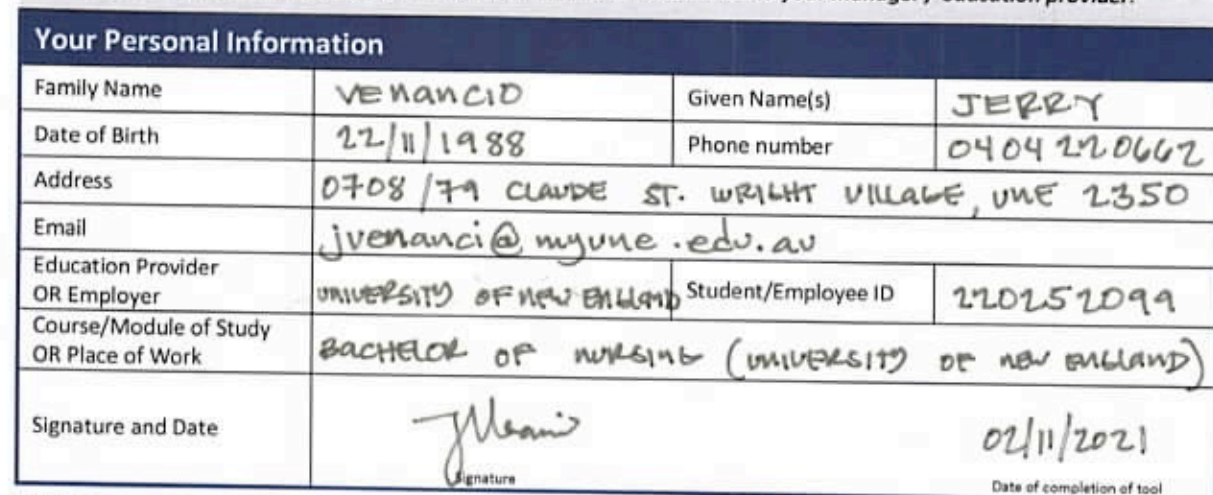 Your Personal Information
Family Name venancio Given Name(s) JERRY
Date of Birth 22/11/1988 Phone number 0404 220662
Address 0708/79 CLAUDE ST. WRIGHT VILLAGE, UNE 2350
Email jvenanci@myune.edu.au
Education Provider
OR Employer UNIVERSITY OF NEW ENGLAND Student/Employee ID 220252099
Course/Module of Study
OR Place of Work BACHELOR OF NURSING (UNIVERSITY OF NEW ENGLAND)
Signature and Date 02/11/2021
Signature Date of completion of tool